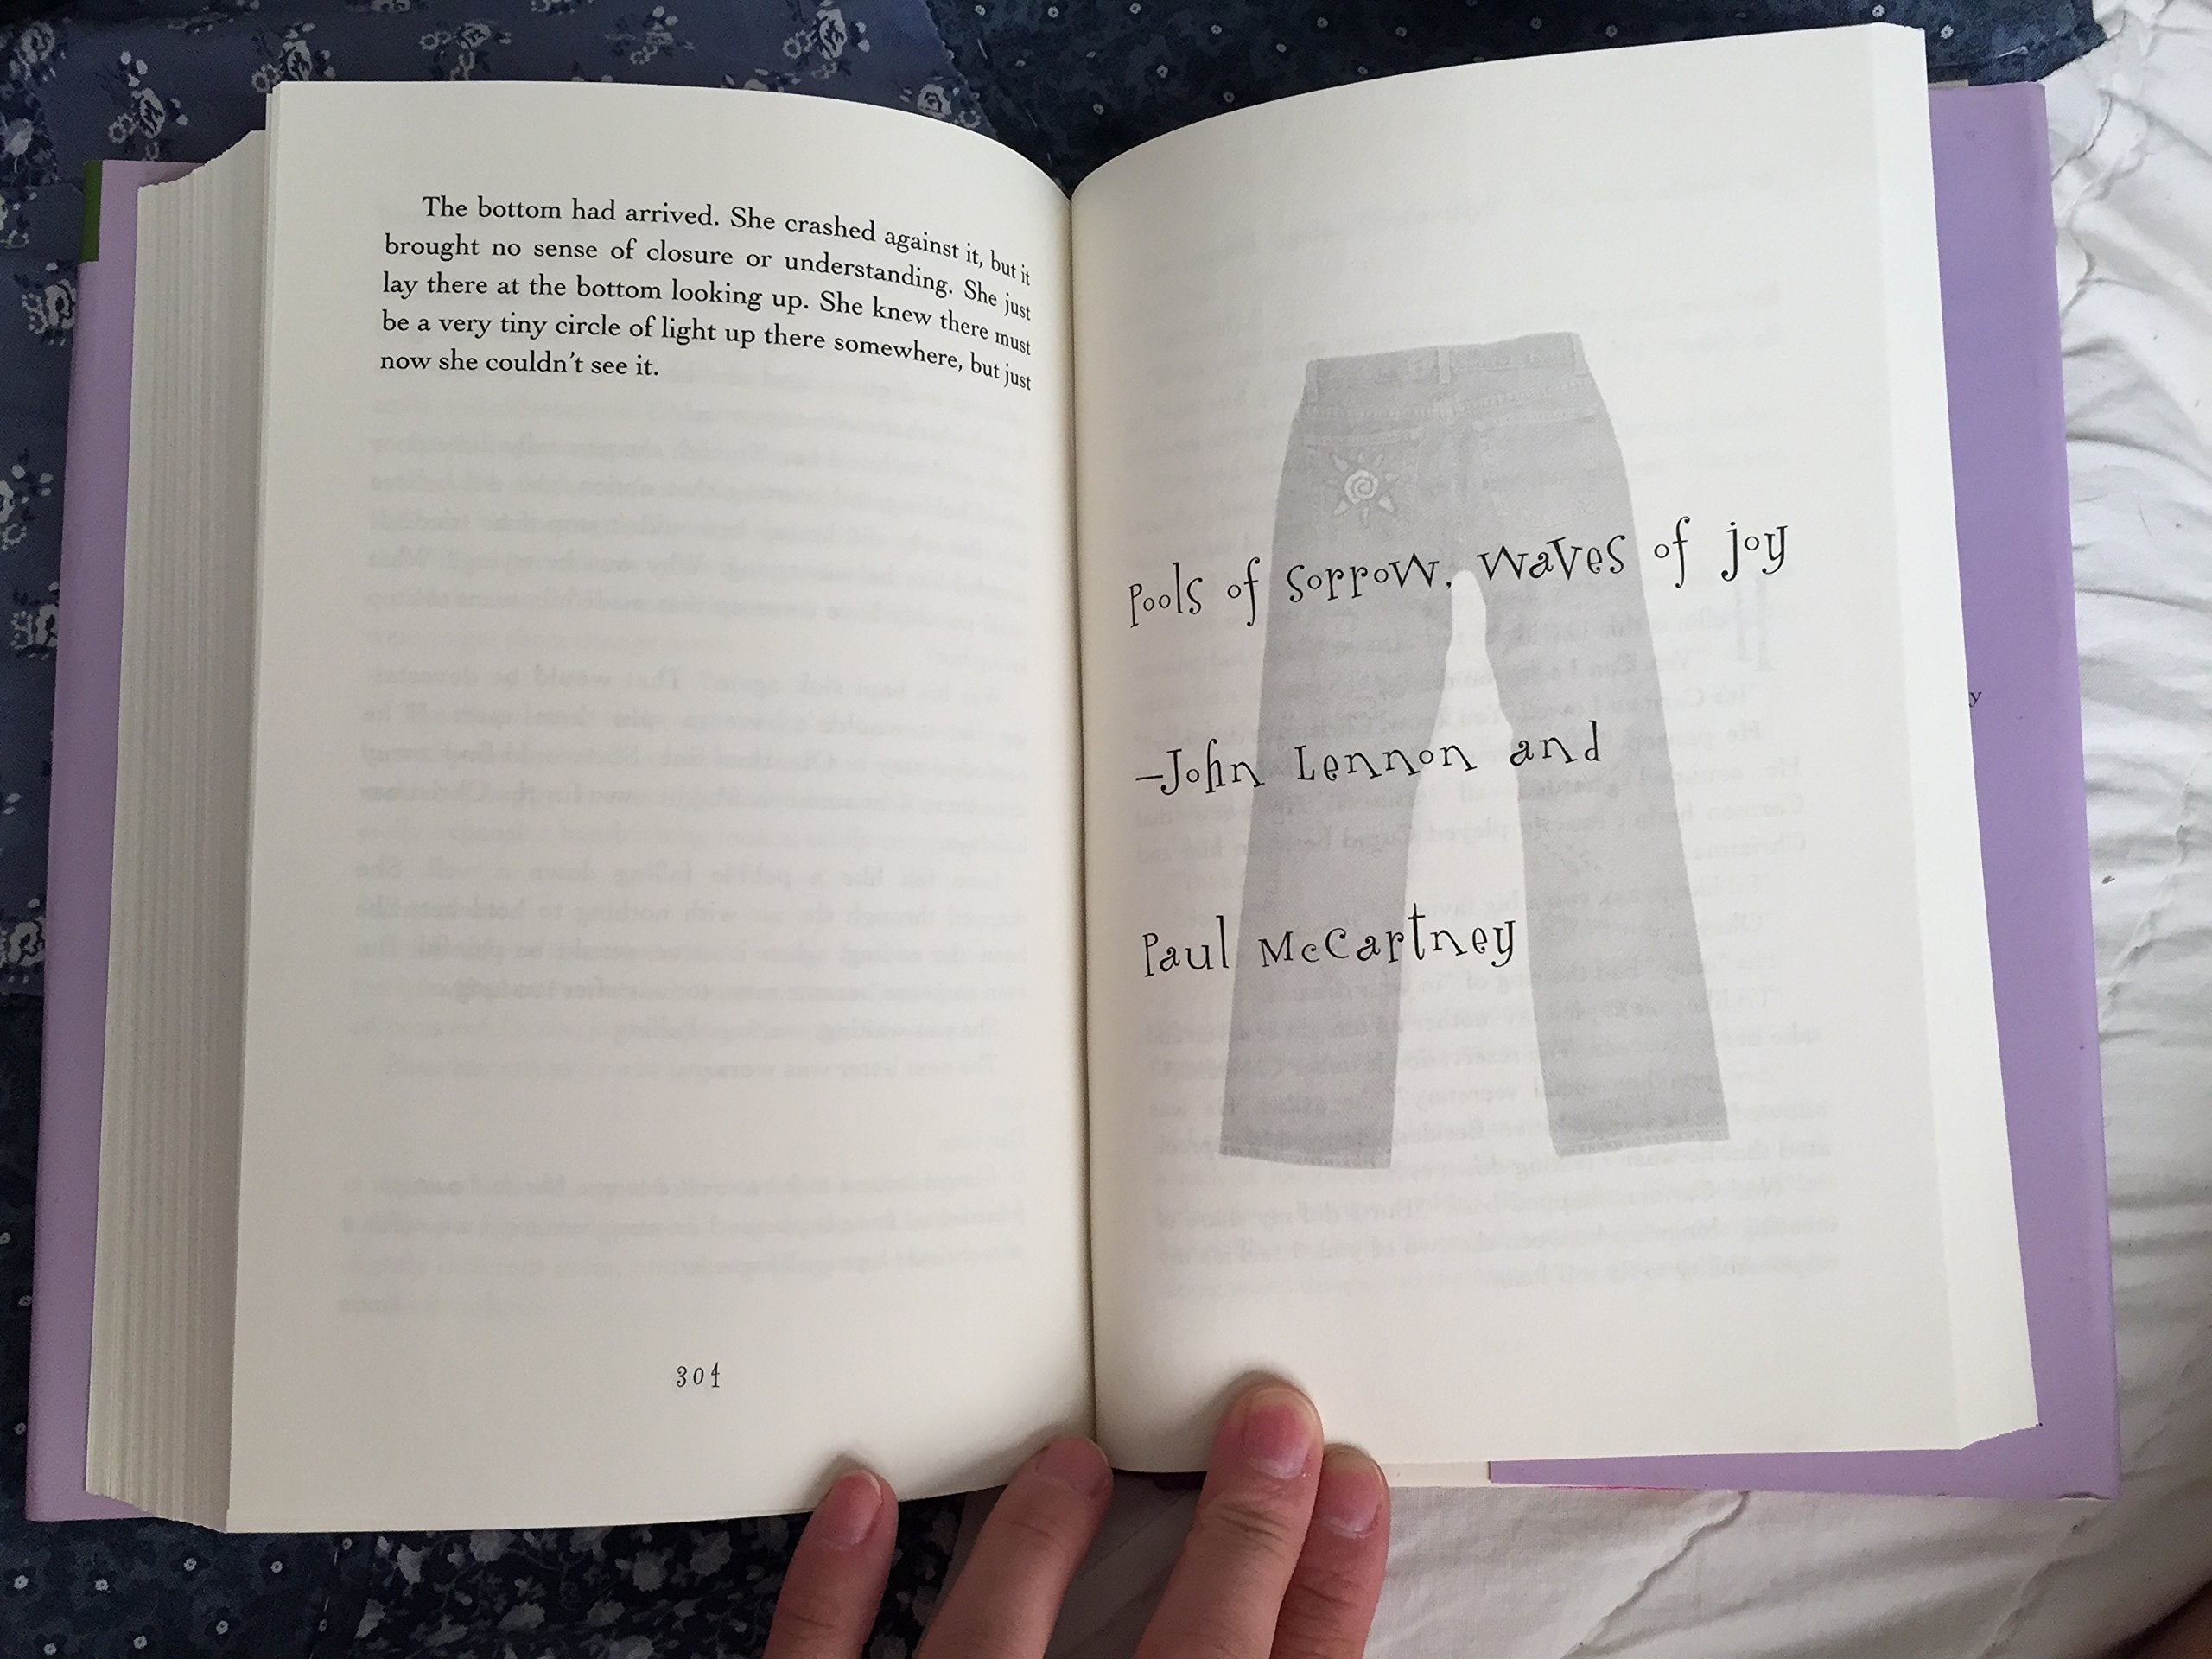 The bottom had arrived. She crashed against it, but it
brought no sense of closure or understanding. She just
lay there at the bottom looking up. She knew there must
be a very tiny circle of light up there somewhere, but just
now she couldn't see it.
304
Pools of sorrow, waves of joy
—John Lennon and
Paul McCartney
y